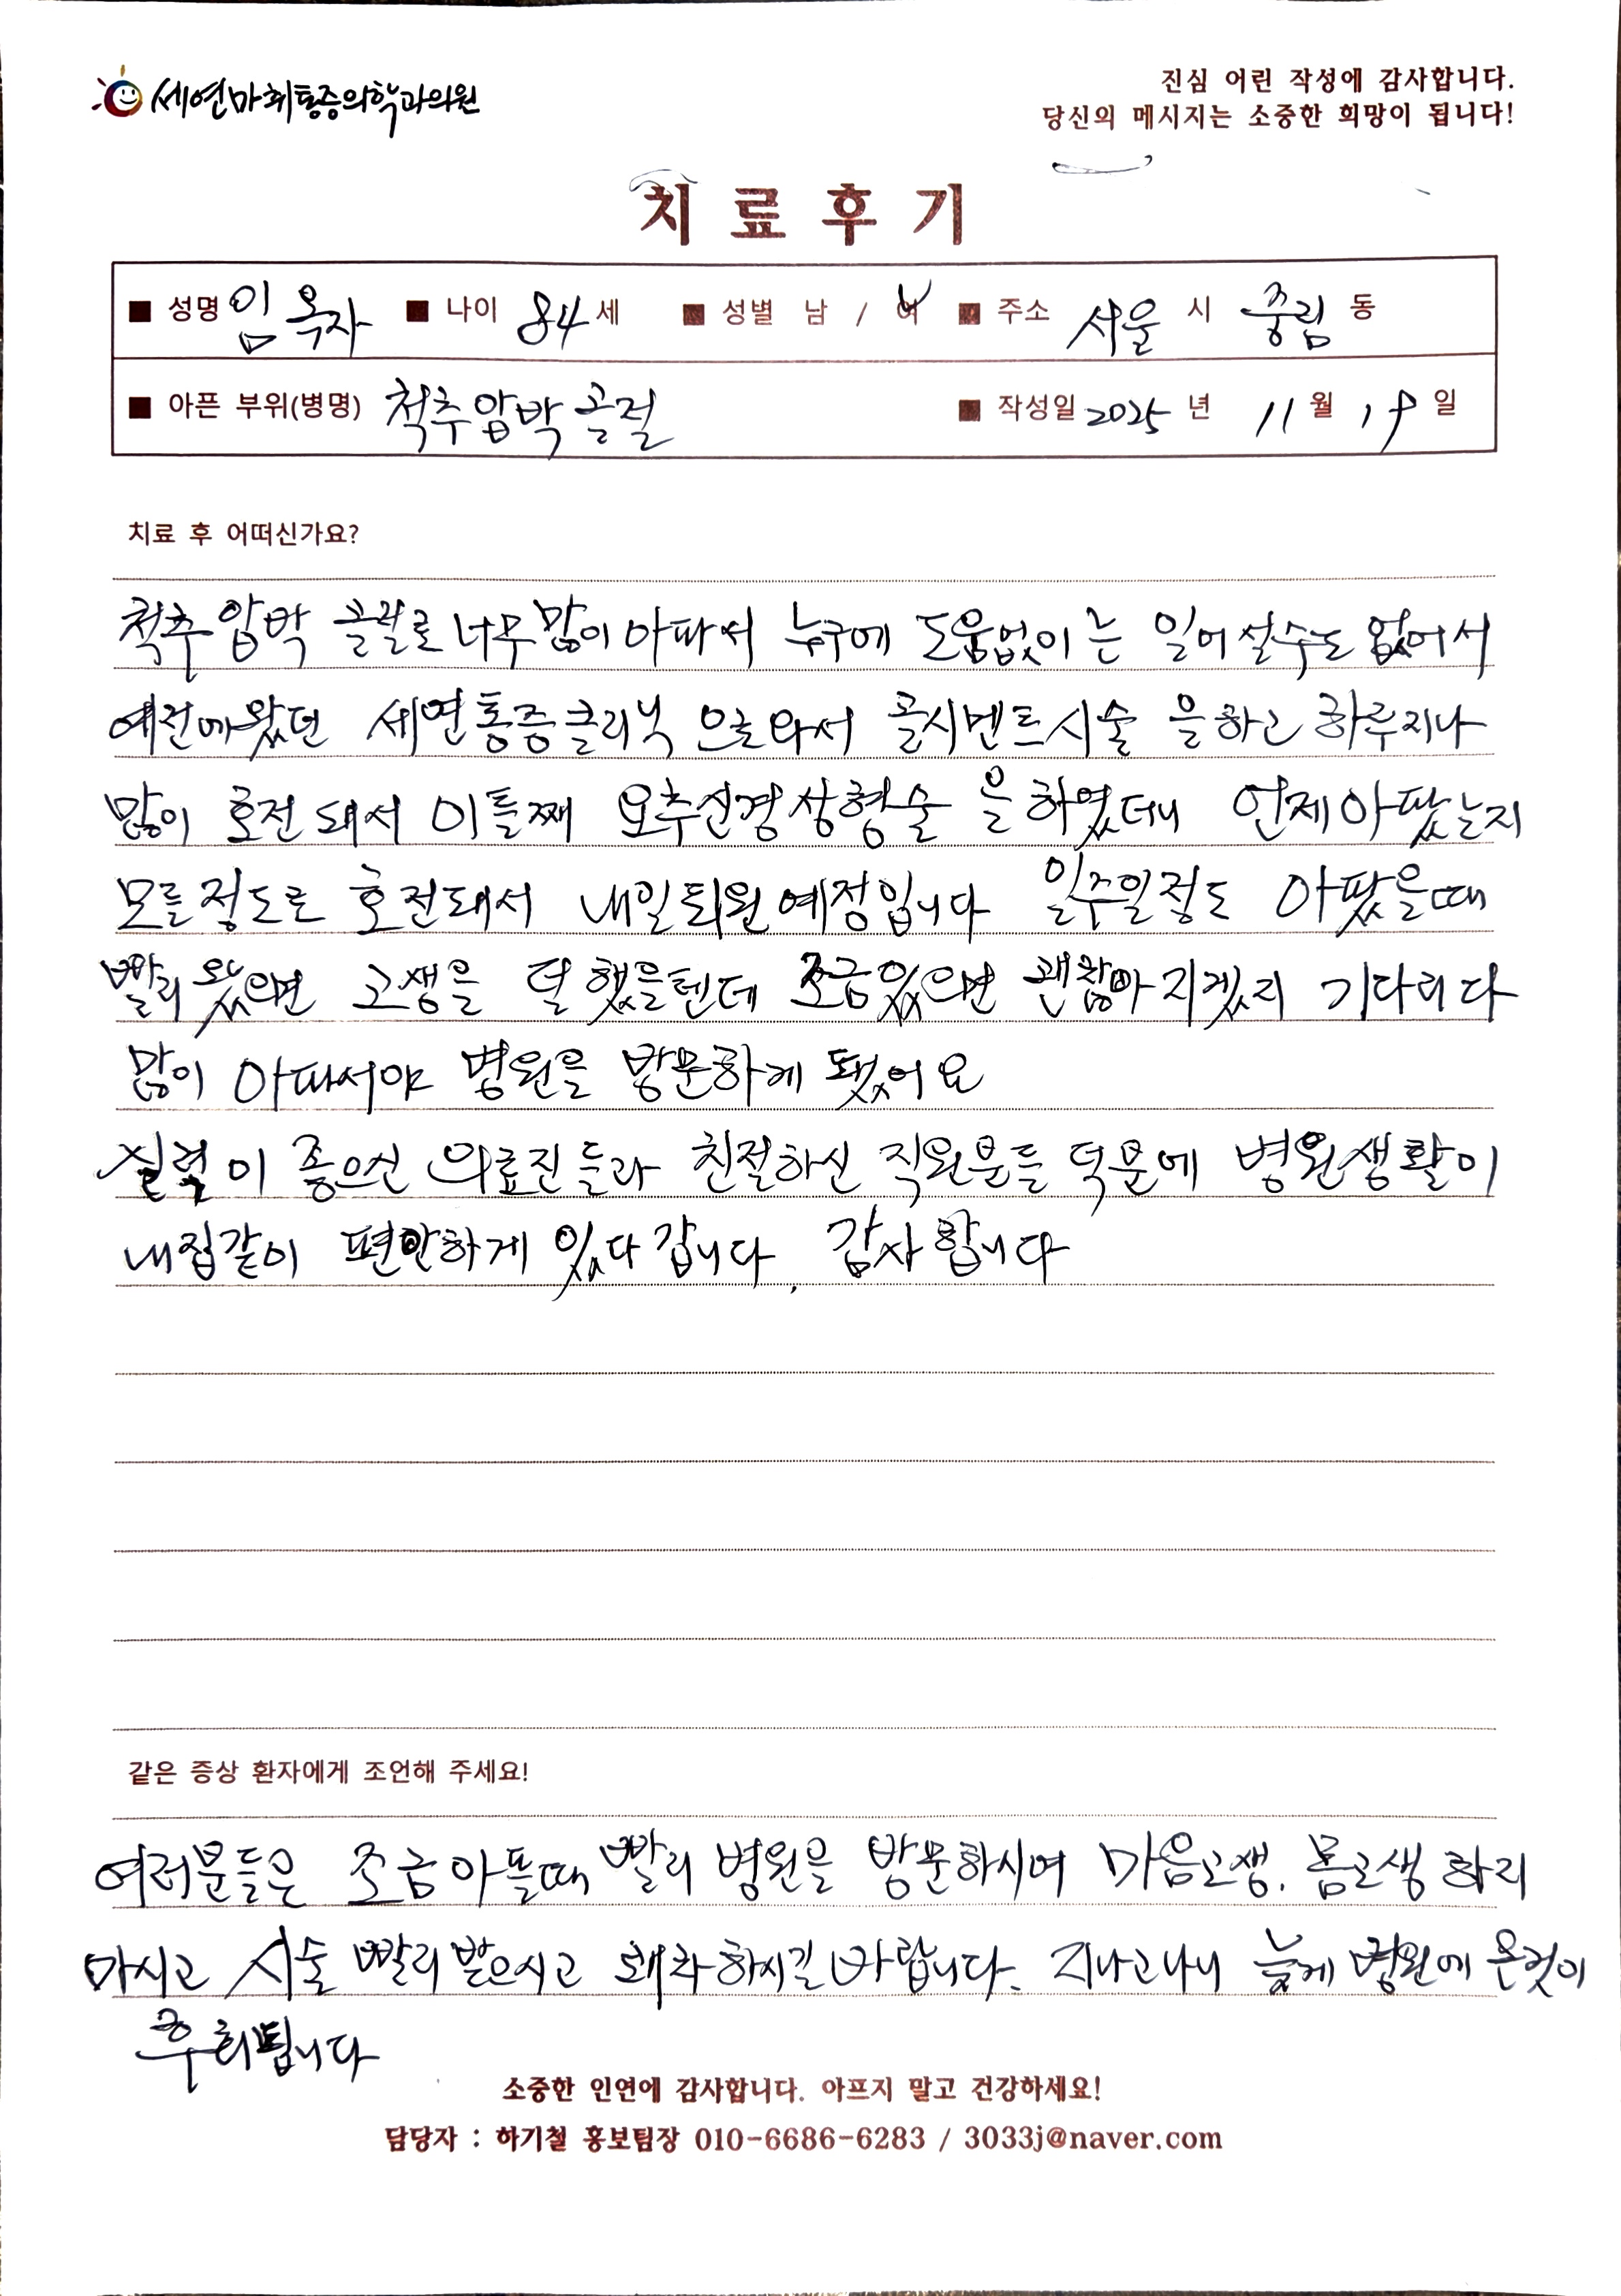 세연마취통증의학과의원
진심 어린 작성에 감사합니다.
당신의 메시지는 소중한 희망이 됩니다!
치료후기
■ 성명 임옥자 ■ 나이 84 세 ■ 성별 남 / 여 ■ 주소 서울 시 중림 동
■ 아픈 부위(병명) 척추압박골절 ■ 작성일 2025 년 11 월 19 일
치료 후 어떠신가요?
척추압박 골절로 너무많이아파서 누구에 도움없이는 일어설수도 없어서
예전에왔던 세연통증클리닉 으로와서 골시멘트시술 을하고 하루지나
많이 호전돼서 이틀째 요추신경성형술 을하였더니 언제아팠는지
모를정도로 호전돼서 내일퇴원예정입니다 일주일정도 아팠을때
빨리왔으면 고생을 덜했을텐데 조금있으면 괜찮아지겠지 기다리다
많이 아파서야 병원을 방문하게 됐어요
실력이 좋으신 의료진들과 친절하신 직원분들 덕분에 병원생활이
내집같이 편안하게 있다갑니다. 감사합니다
같은 증상 환자에게 조언해 주세요!
여러분들은 조금아플때 빨리 병원을 방문하시여 마음고생. 몸고생 하지
마시고 시술 빨리받으시고 쾌차하시길바랍니다. 지나고나니 늦게 병원에 온것이
후회됩니다
소중한 인연에 감사합니다. 아프지 말고 건강하세요!
담당자 : 하기철 홍보팀장 010-6686-6283 / 3033j@naver.com